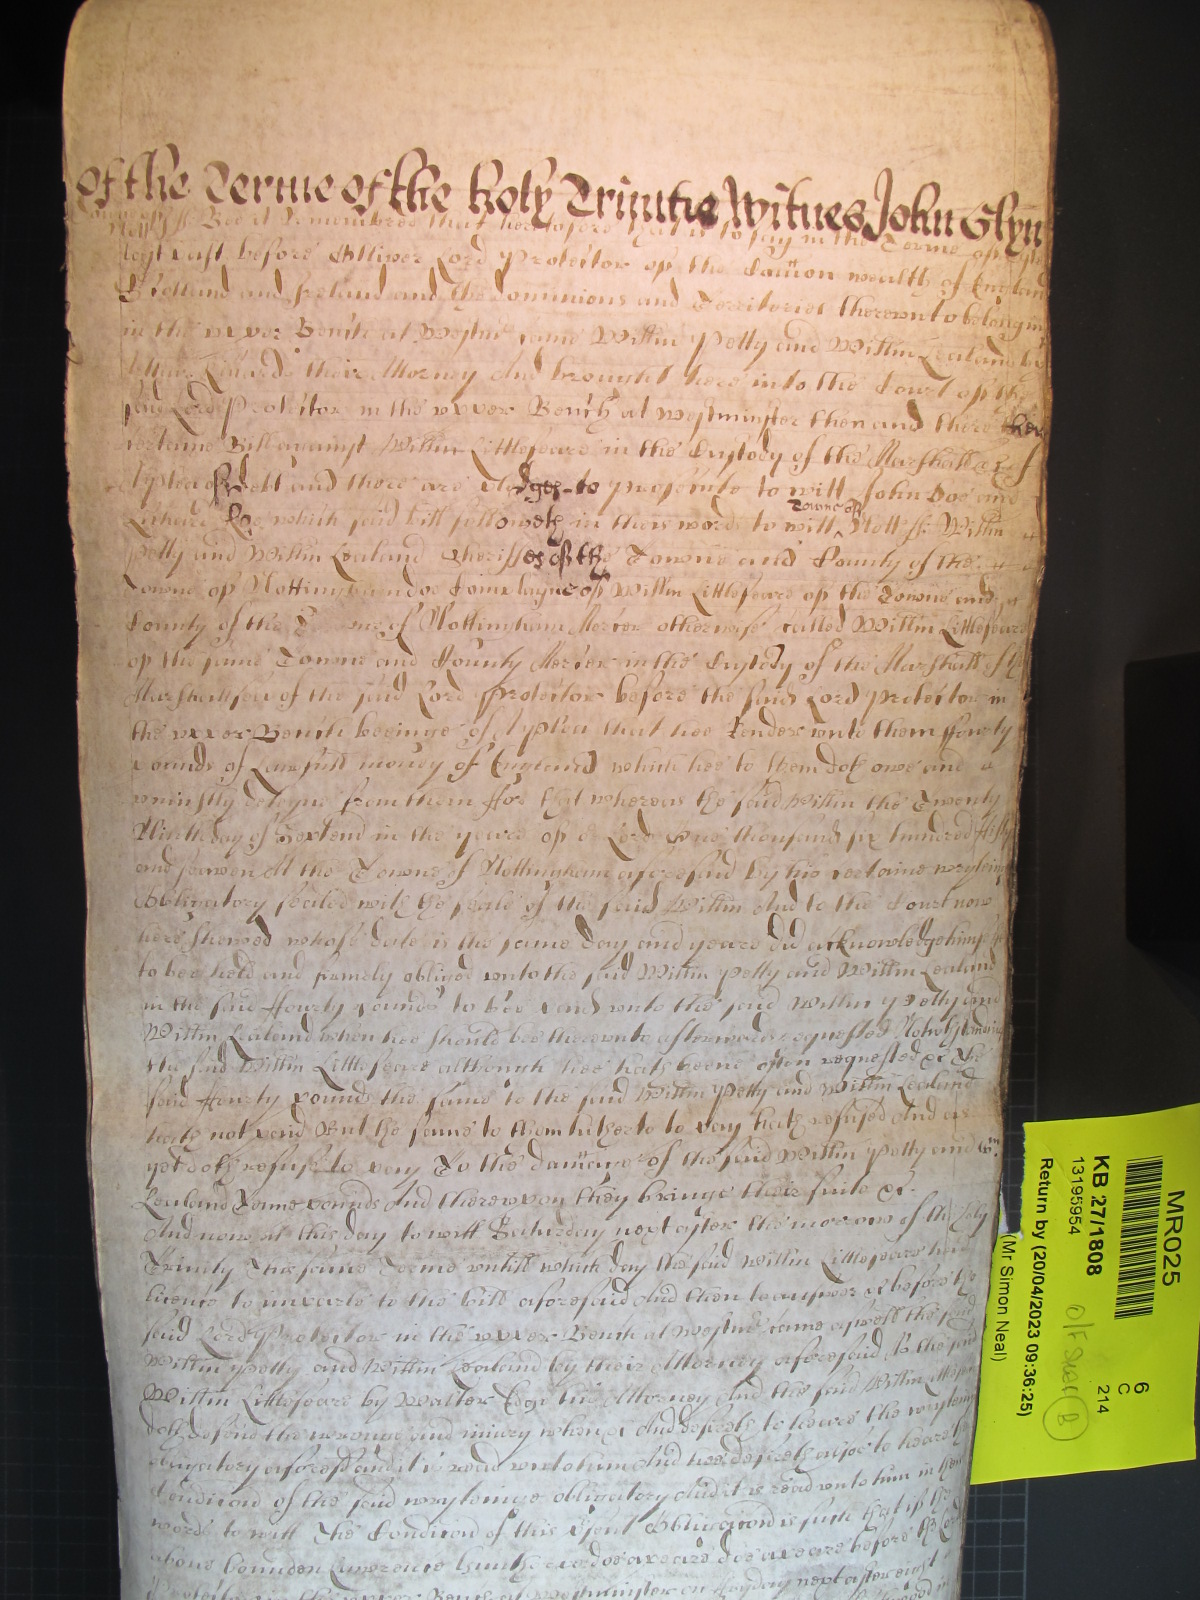 Of the Terme of the holy Trinitie Witnes John Glyn
Bee it Remembred that heretofore that is to say in the Terme of
last past before Olliver Lord Protector of the Com̃on wealth of England
Scotland and Ireland and the dominions and Territories thereunto belonging
in the upper Bench at Westm̃ came Willm̃ Petty and Willm̃ Lealand by
their Attorney And brought here into the Court of the
said Lord Protector in the upper Bench at Westminster then and there their
certaine Bill against Willm̃ Littlefeare in the Custody of the Marshall &c of
a plea of Debt and there are pledges to prosecute to witt John Doe and
Richard Roe which said bill followeth in theis words to witt Towne of Nott ss Willm̃
Petty and Willm̃ Lealand Sheriffes of the Towne and County of the
Towne of Nottingham doe Complayne of Willm̃ Littlefeare of the Towne and
County of the Towne of Nottingham Mercer otherwise called Willm̃ Littlefeare
of the same Towne and County Mercer in the Custody of the Marshall of the
Marshallsea of the said Lord Protector before the said Lord Protector in
the upper Bench beeinge of A plea that hee Render unto them fforty
pounds of Lawfull money of England which hee to them doth owe and
uniustly detayne from them For that whereas the said Willm̃ the Twenty
Ninth day of in the yeare of or Lord One thousand six hundred fifty
and seaven At the Towne of Nottingham aforesaid by his certaine wryting
Obligatory sealed with the seale of the said Willm̃ And to the Court now
here shewed whose date is the same day and yeare did acknowledge himselfe
to bee held and firmely obliged unto the said Willm̃ Petty and Willm̃ Lealand
in the said fforty pounds to bee paid unto the said Willm̃ Petty and
Willm̃ Lealand when hee should bee thereunto afterwards requested Notwithstanding
the said Willm̃ Littlefeare although hee hath beene often requested &c the
said fforty pounds the same to the said Willm̃ Petty and Willm̃ Lealand
hath not paid But the same to them hitherto to pay hath refused And as
yet doth refuse to pay To the dam̃age of the said Willm̃ Petty and Wm
Lealand Tenne pounds And thereupon they bringe their suite &c.
And now at this day to witt Saturday next after the morrow of the Holy
Trinity This same Terme untill which day the said Willm̃ Littlefeare had
licence to imparle to the bill aforesaid And then to answer &c before the
said Lord Protector in the upper Bench at Westm̃ came aswell the said
Willm̃ Petty and Willm̃ Lealand by their Attorney aforesaid As the said
Willm̃ Littlefeare by Walter his Attorney And the said Willm̃
doth defend the wronge and iniury when &c And desireth to heare the wryteing
obligatory aforesd and it is read unto him And hee desireth also to heare the
Condicõn of the said wryteinge obligatory And it is read unto him in theis
words to witt The Condicõn of this Obligacõn is such that if the
above bounden Smith doe appeare before the Lord
Protector in the upper Bench at Westminster on next after
MR025
KB 27/1808
13195954
Return by (20/04/2023 09:36:25)
(Mr Simon Neal)
6
C
214
B